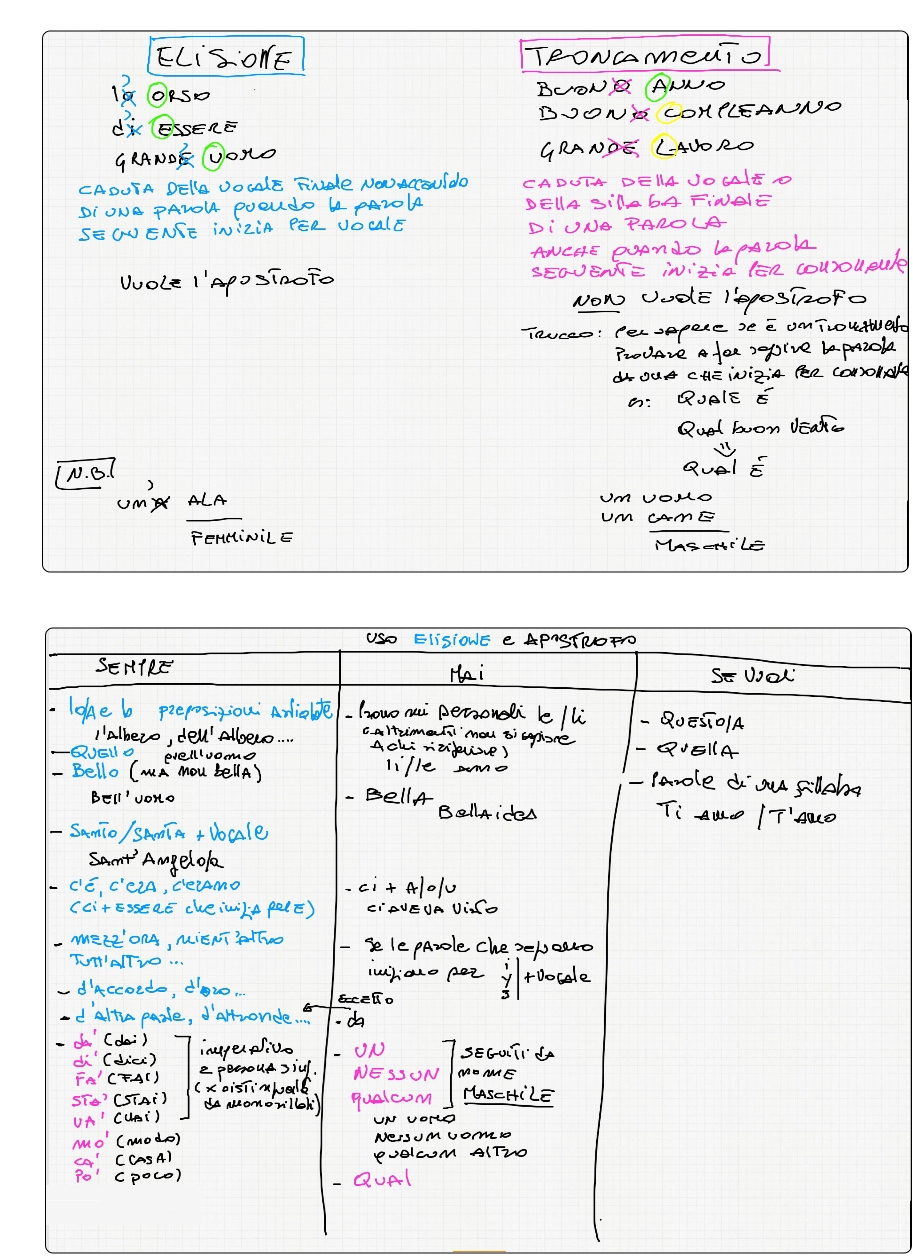 ELISIONE
lo ORSO
di ESSERE
GRANDE UOMO
CADUTA DELLA VOCALE FINALE NON ACCENTATA
DI UNA PAROLA QUANDO LA PAROLA
SEGUENTE INIZIA PER VOCALE
VUOLE L'APOSTROFO
N.B.
UNA ALA
FEMMINILE
TRONCAMENTO
BUONO ANNO
BUONO COMPLEANNO
GRANDE LAVORO
CADUTA DELLA VOCALE O
DELLA SILLABA FINALE
DI UNA PAROLA
ANCHE QUANDO LA PAROLA
SEGUENTE INIZIA PER CONSONANTE
NON VUOLE L'APOSTROFO
TRUCCO: PER SAPERE SE È UN TRONCAMENTO
PROVARE A far seguire la PAROLA
da una CHE INIZIA PER CONSONANTE
es: QUALE È
Qual buon VENTO
QUAL È
UN UOMO
UN CANE
MASCHILE
USO ELISIONE e APOSTROFO
SEMPRE
- lo/la e le preposizioni Articolate
l'Albero, dell'Albero....
- QUELLO quell'uomo
- Bello (MA NON bellA)
BELL'UOMO
- SANTO/SANTA + Vocale
SANT'Angelo/a
- C'È, C'ERA, C'ERANO
(Ci + ESSERE che inizia per E)
- MEZZ'ORA, NIENT'ALTRO
TUTT'ALTRO ...
- d'Accordo, d'oro...
- d'Altra parte, d'altronde....
- da' (dai)
di' (dici)
FA' (FAI)
STA' (STAI)
VA' (VAI)
imperativo
2 persona sing.
(x distinguerli
da monosillabi)
MO' (modo)
CA' (CASA)
PO' (poco)
MAI
- Pronomi personali le / li
(altrimenti non si capisce
A chi riferire)
li/le amo
- BELLA
BELLA idea
- ci + A/o/u
CI AVEVA VISTO
- Se le parole che seguono
iniziano per i y j + vocale
ECCETTO
- da
- UN
NESSUN
qualcun
SEGUITI da
NOME
MASCHILE
UN UOMO
NESSUN UOMO
qualcun ALTRO
- QUAL
SE VUOI
- QUESTO/A
- QUELLA
- PAROLE di una sillaba
Ti AMO / T'AMO